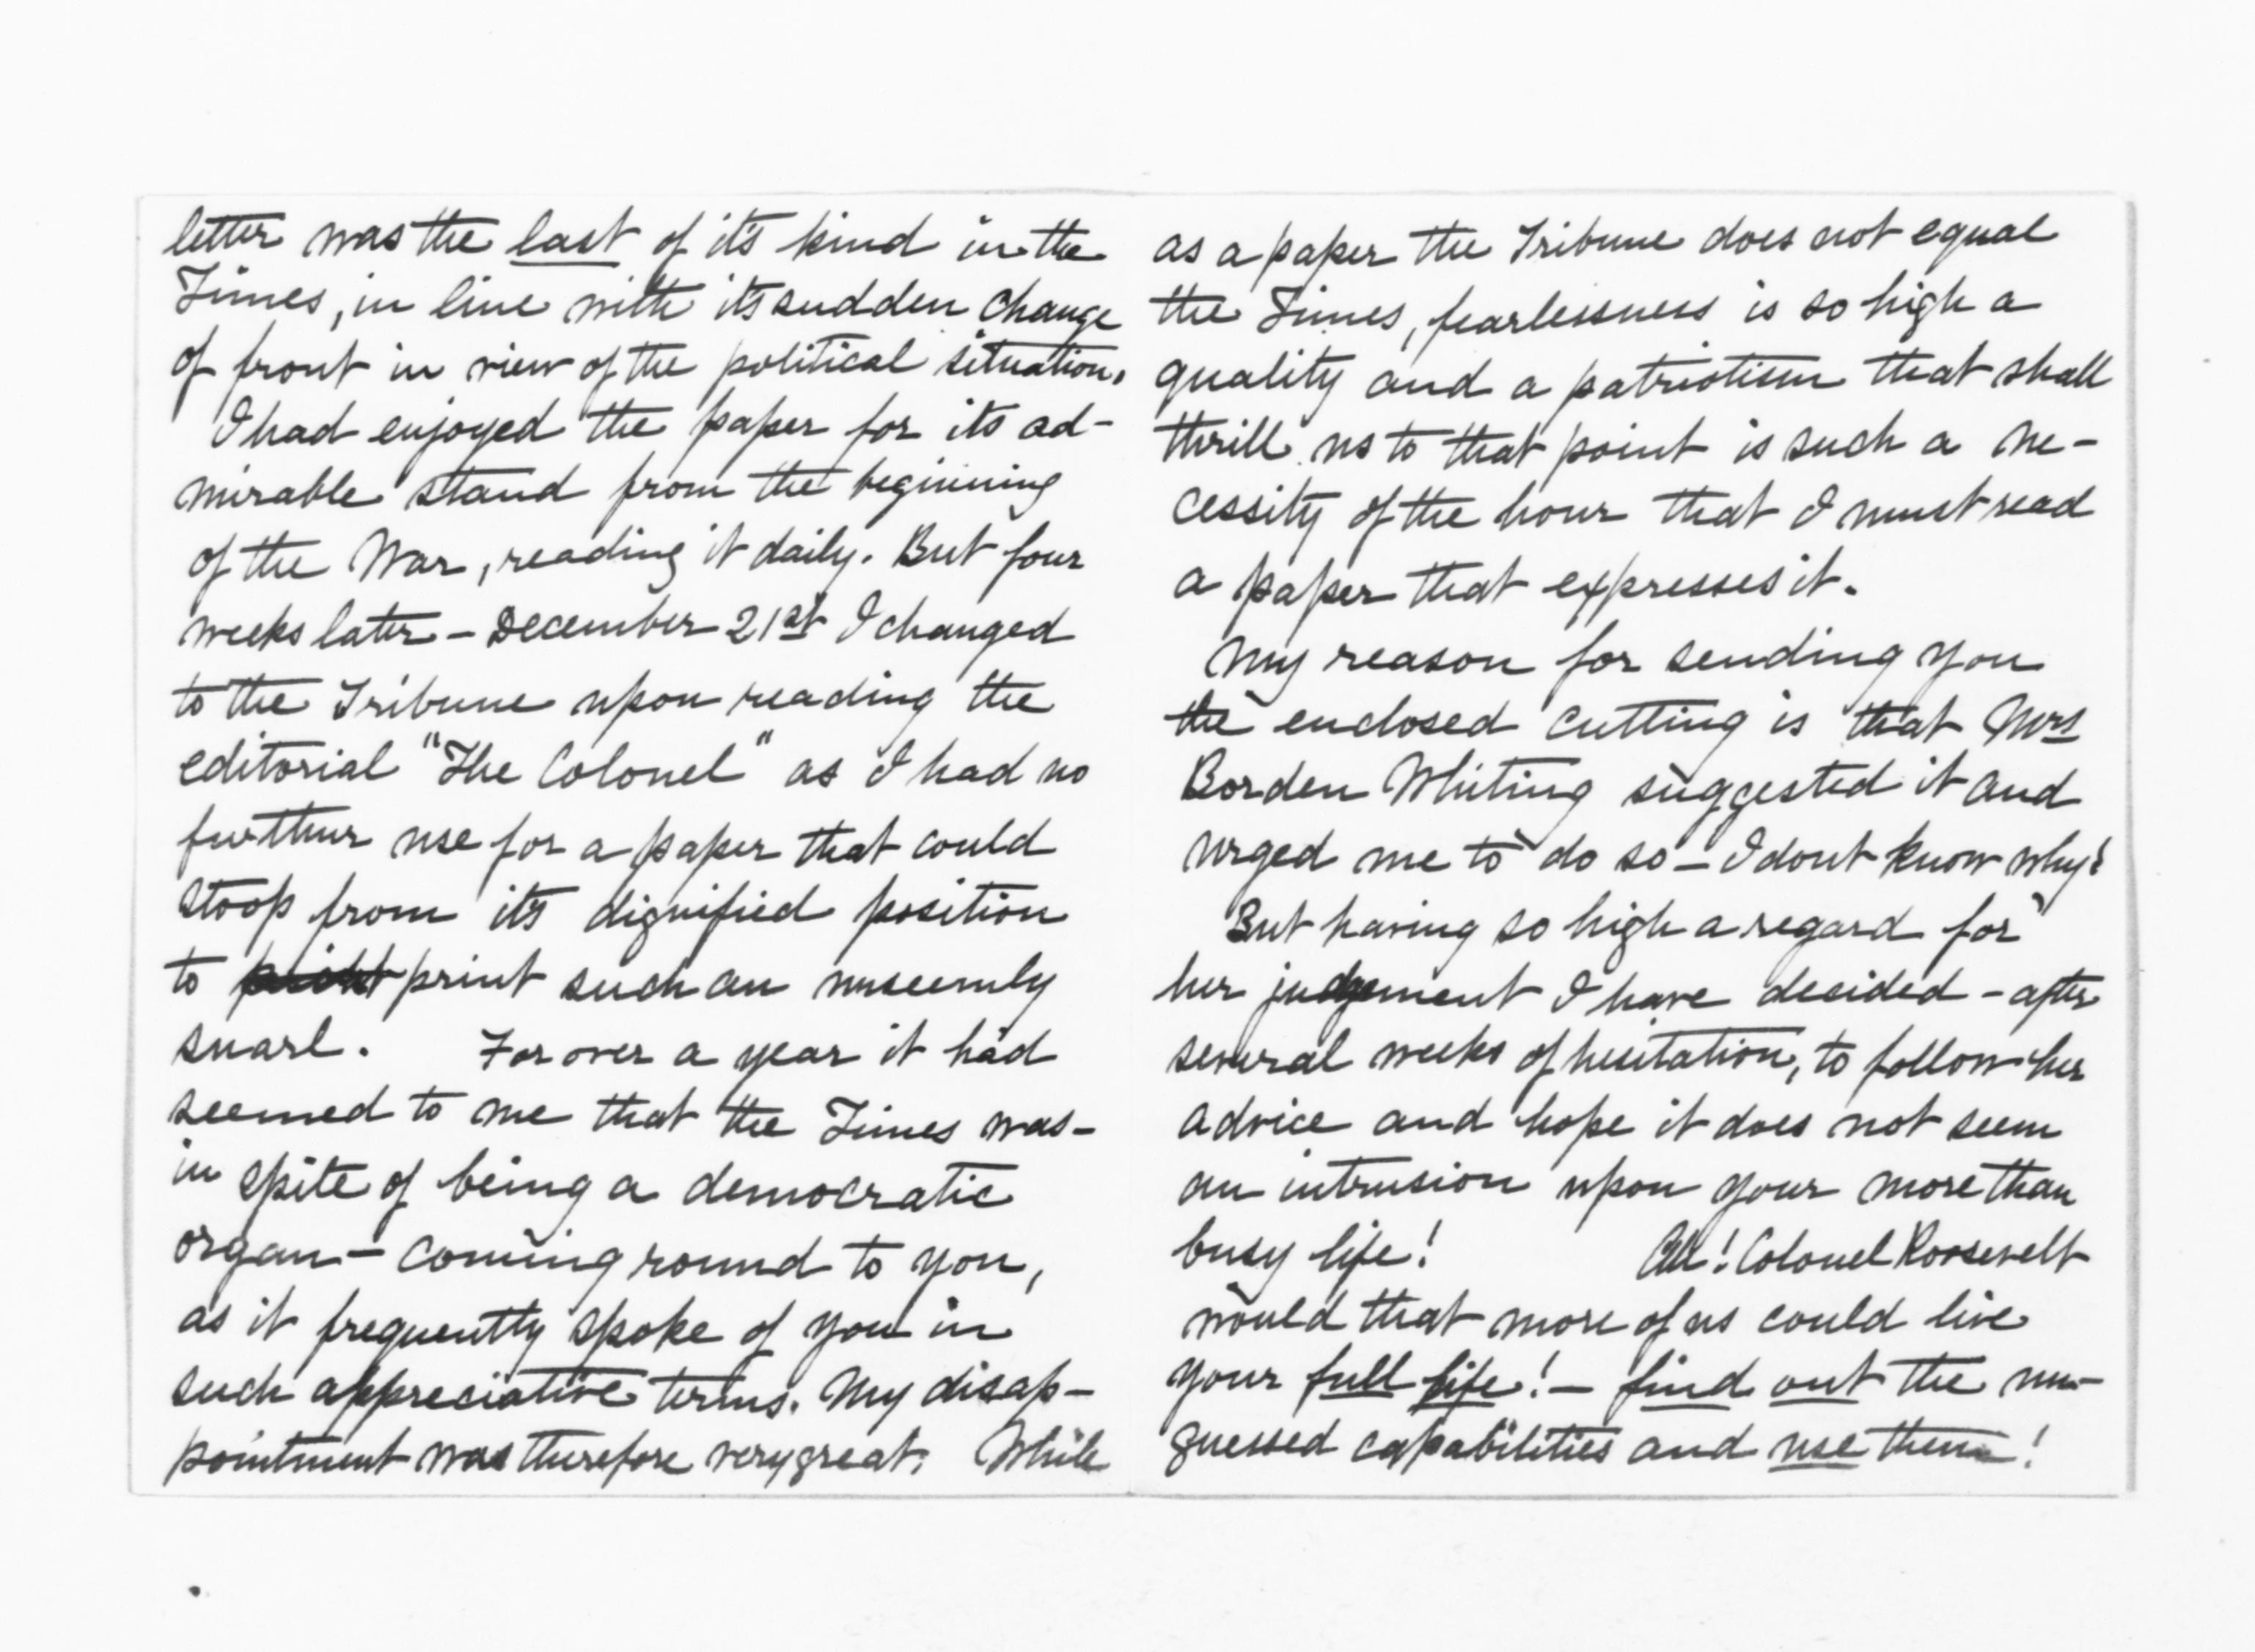 letter was the last of it's kind in the
Times, in line with its sudden change
of front in view of the political situation.
I had enjoyed the paper for its ad-
mirable stand from the beginning
of the War, reading it daily. But four
weeks later - December 21st I changed
to the Tribune upon reading the
editorial "The Colonel" as I had no
further use for a paper that could
stoop from its dignified position
to print such an unseemly
snarl. For over a year it had
seemed to me that the Times was -
in spite of being a democratic
organ - coming round to you,
as it frequently spoke of you in
such appreciative terms. My disap-
pointment was therefore very great. While
as a paper the Tribune does not equal
the Times, fearlessness is so high a
quality and a patriotism that shall
thrill us to that point is such a ne-
cessity of the hour that I must read
a paper that expresses it.
My reason for sending you
the enclosed cutting is that Mrs
Borden Whiting suggested it and
urged me to do so - I dont know why!
But having so high a regard for
her judgement I have decided - after
several weeks of hesitation, to follow her
advice and hope it does not seem
an intrusion upon your more than
busy life! Ah! Colonel Roosevelt
would that more of us could live
your full life! - find out the un-
guessed capabilities and use them!